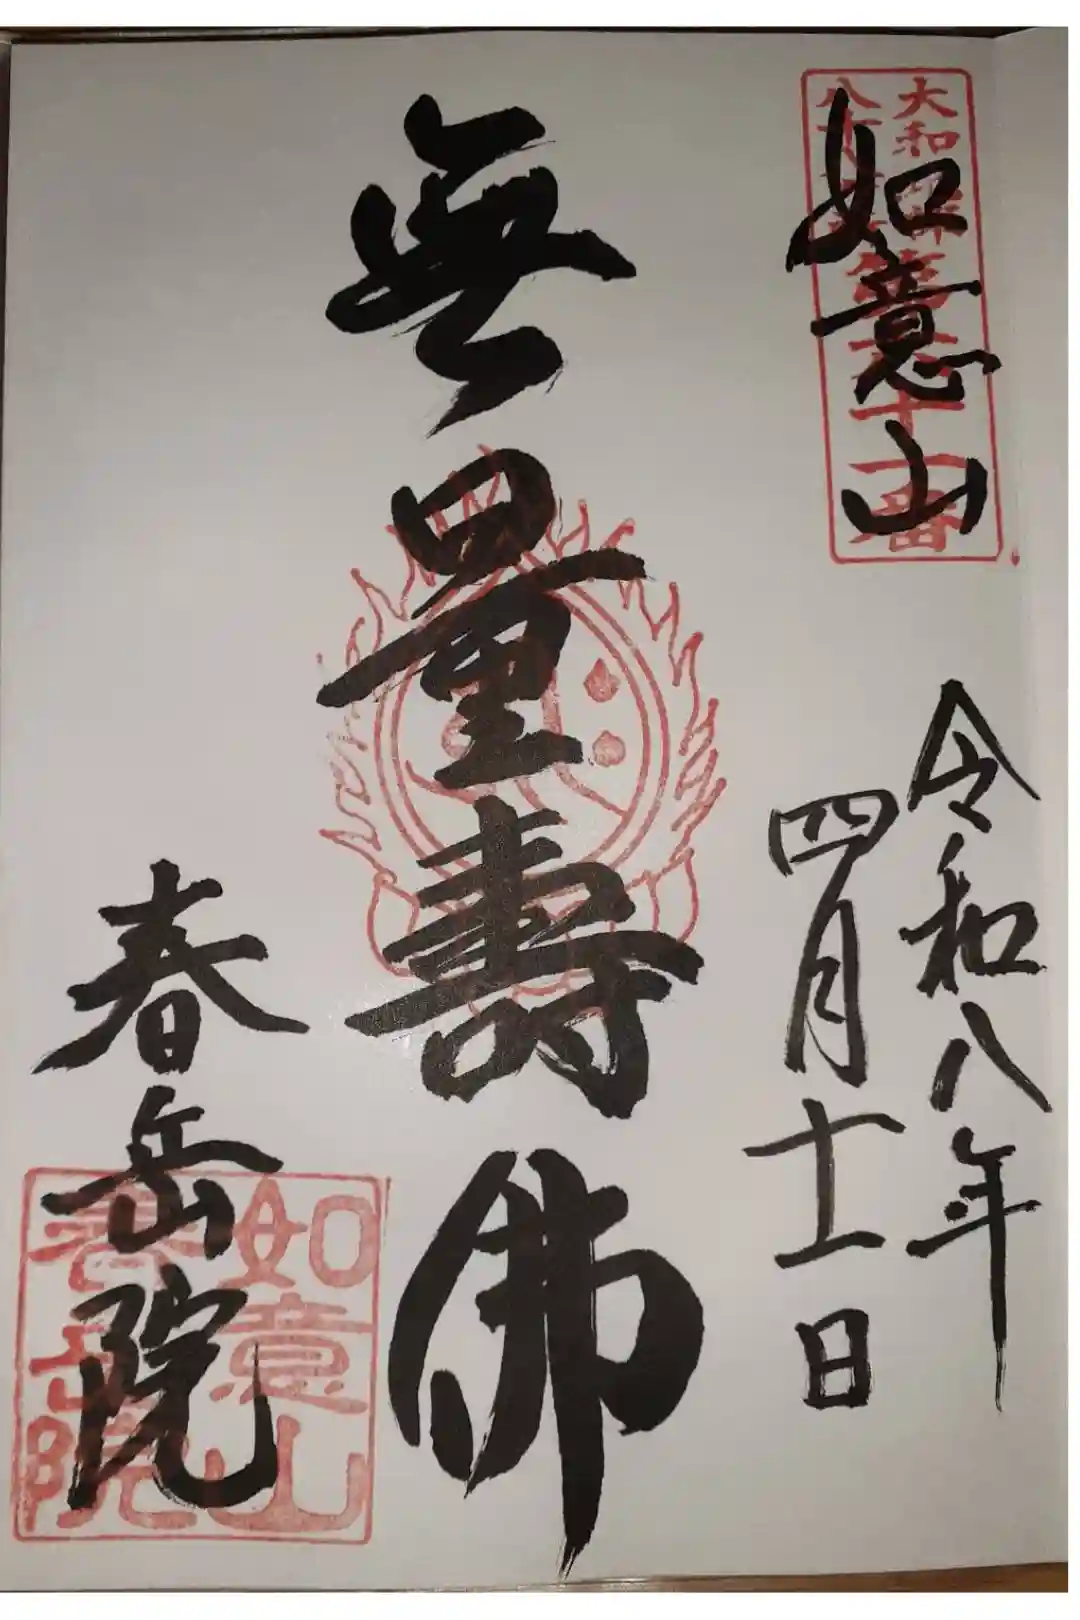 如意山
大和
八十八
番
令和八年
四月十一日
無量壽佛
春岳院
如意山
春岳院